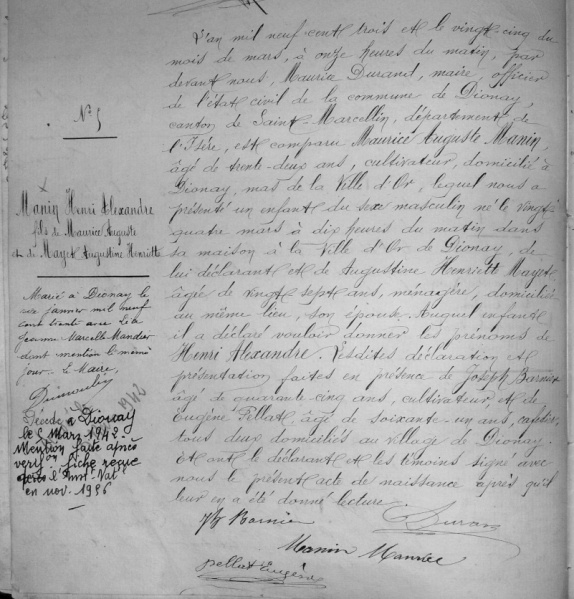 L'an mil neuf cent trois et le vingt-cinq du
mois de mars, à onze heures du matin, par
devant nous, Maurice Durand, maire, officier
de l'état civil de la commune de Dionay,
canton de Saint Marcellin, département de
l'Isère, est comparu Maurice Auguste Manin,
âgé de trente-deux ans, cultivateur, domicilié à
Dionay, mas de la Ville d'Or, lequel nous a
présenté un enfant du sexe masculin né le vingt
quatre mars à dix heures du matin dans
sa maison à la Ville d'Or de Dionay, de
lui déclarant et de Augustine Henriett Mayet
âgée de vingt sept ans, ménagère, domiciliée
au même lieu, son épouse. Auquel enfant
il a déclaré vouloir donner les prénoms de
Henri Alexandre. Lesdites déclaration et
présentation faites en présence de Joseph Barnier
âgé de quarante-cinq ans, cultivateur, et de
Eugène Pellat, âgé de soixante-un ans, cafetier,
tous deux domiciliés au village de Dionay.
Et ont le déclarant et les témoins signé avec
nous le présent acte de naissance après qu'il
leur en a été donné lecture.
Barnier
Durand
Manin Maurice
pellat Eugène
N° 5
Manin Henri Alexandre
fils de Maurice Auguste
et de Mayet Augustine Henriette
Marié à Dionay le
janvier mil neuf
cent trente avec
Jeanne Marcelle Mandier
dont mention le même
jour. Le Maire,
Décédé à Dionay
le 5 Mars 1942.
Mention faite après
verif on fiche reçue
de l'Inst. Nat
en nov. 1956